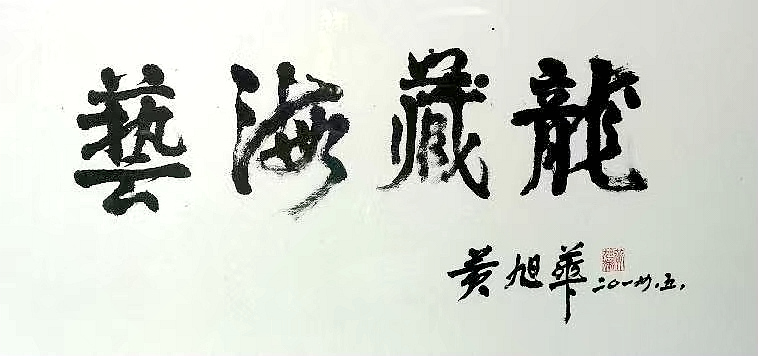 藝海藏龍
黄旭華 二〇一廿.五.